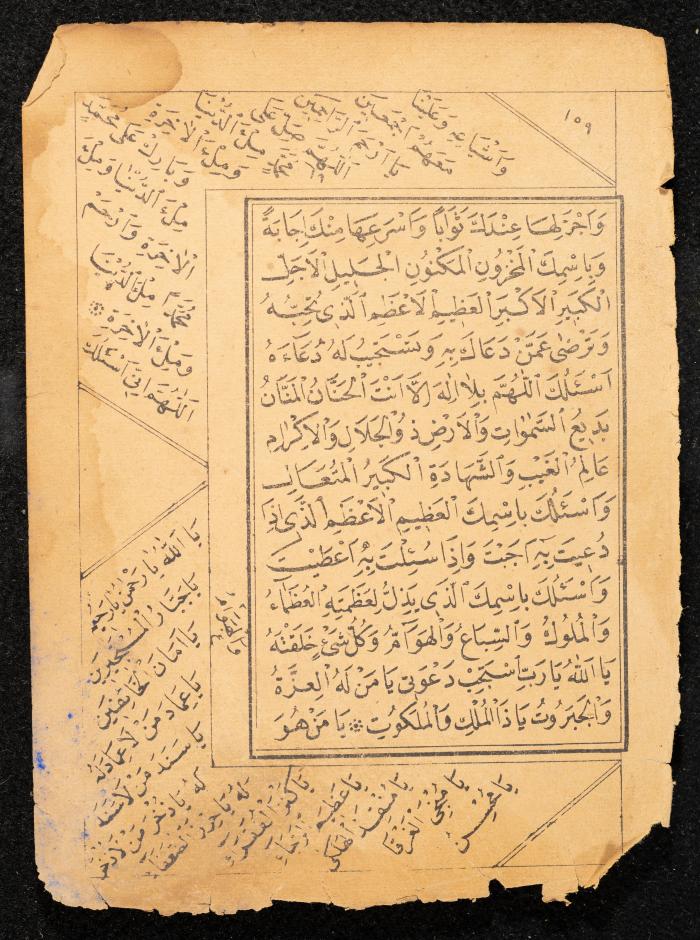 ١٥٩
وَاَجْزَلِهَا عِنْدَكَ ثَوَابًا وَاَسْرَعِهَا مِنْكَ اِجَابَةً
وَبِاِسْمِكَ الْمَخْزُونِ الْمَكْنُونِ الْجَلِيلِ الْاَجَلِّ
الْكَبِيرِ الْاَكْبَرِ الْعَظِيمِ الْاَعْظَمِ الَّذِى تُحِبُّهُ
وَتَرْضٰى عَمَّنْ دَعَاكَ بِهِ وَتَسْتَجِيبُ لَهُ دُعَاءَهُ
اَسْئَلُكَ اللّٰهُمَّ بِلَا اِلٰهَ اِلَّا اَنْتَ الْحَنَّانُ الْمَنَّانُ
بَدِيعُ السَّمٰوَاتِ وَالْاَرْضِ ذُوالْجَلَالِ وَالْاِكْرَامِ
عَالِمُ الْغَيْبِ وَالشَّهَادَةِ الْكَبِيرُ الْمُتَعَالِ
وَاَسْئَلُكَ بِاسْمِكَ الْعَظِيمِ الْاَعْظَمِ الَّذِى اِذَا
دُعِيتَ بِهِ اَجَبْتَ وَاِذَا سُئِلْتَ بِهِ اَعْطَيْتَ
وَاَسْئَلُكَ بِاسْمِكَ الَّذِى يَذِلُّ لِعَظَمَتِهِ الْعُظَمَاءُ
وَالْمُلُوكُ وَالسِّبَاعُ وَالْهَوَامُّ وَكُلُّ شَئٍ خَلَقْتَهُ
يَا اَللّٰهُ يَا رَبِّ اسْتَجِبْ دَعْوَتِى يَا مَنْ لَهُ الْعِزَّةُ
وَالْجَبَرُوتُ يَا ذَا الْمُلْكِ وَالْمَلَكُوتِ ❊ يَا مَنْ هُوَ
وَالْهَوَامُّ
وَاَشْيَاعِهِ وَعَلَيْنَا
مَعَهُمْ اَجْمَعِينَ
يَا اَرْحَمَ الرَّاحِمِينَ
اَللّٰهُمَّ صَلِّ عَلٰى
مُحَمَّدٍ مِلْءَ الدُّنْيَا
وَمِلْءَ الْاٰخِرَةِ
وَبَارِكْ عَلٰى مُحَمَّدٍ
مِلْءَ الدُّنْيَا وَمِلْءَ
الْاٰخِرَةِ وَارْحَمْ
مُحَمَّدًا مِلْءَ الدُّنْيَا
وَمِلْءَ الْاٰخِرَةِ ❊
اَللّٰهُمَّ اِنِّى اَسْئَلُكَ
يَا اَللّٰهُ يَا رَحْمٰنُ يَا رَحِيمُ
يَا جَارَ الْمُسْتَجِيرِينَ
يَا اَمَانَ الْخَائِفِينَ
يَا عِمَادَ مَنْ لَا عِمَادَ لَهُ
يَا سَنَدَ مَنْ لَا سَنَدَ
لَهُ يَا ذُخْرَ مَنْ لَا ذُخْرَ
لَهُ يَا حِرْزَ الضُّعَفَاءِ
يَا كَنْزَ الْفُقَرَاءِ
يَا عَظِيمَ الرَّجَاءِ
يَا مُنْقِذَ الْهَلْكٰى
يَا مُنْجِىَ الْغَرْقٰى
يَا مُحْسِنُ